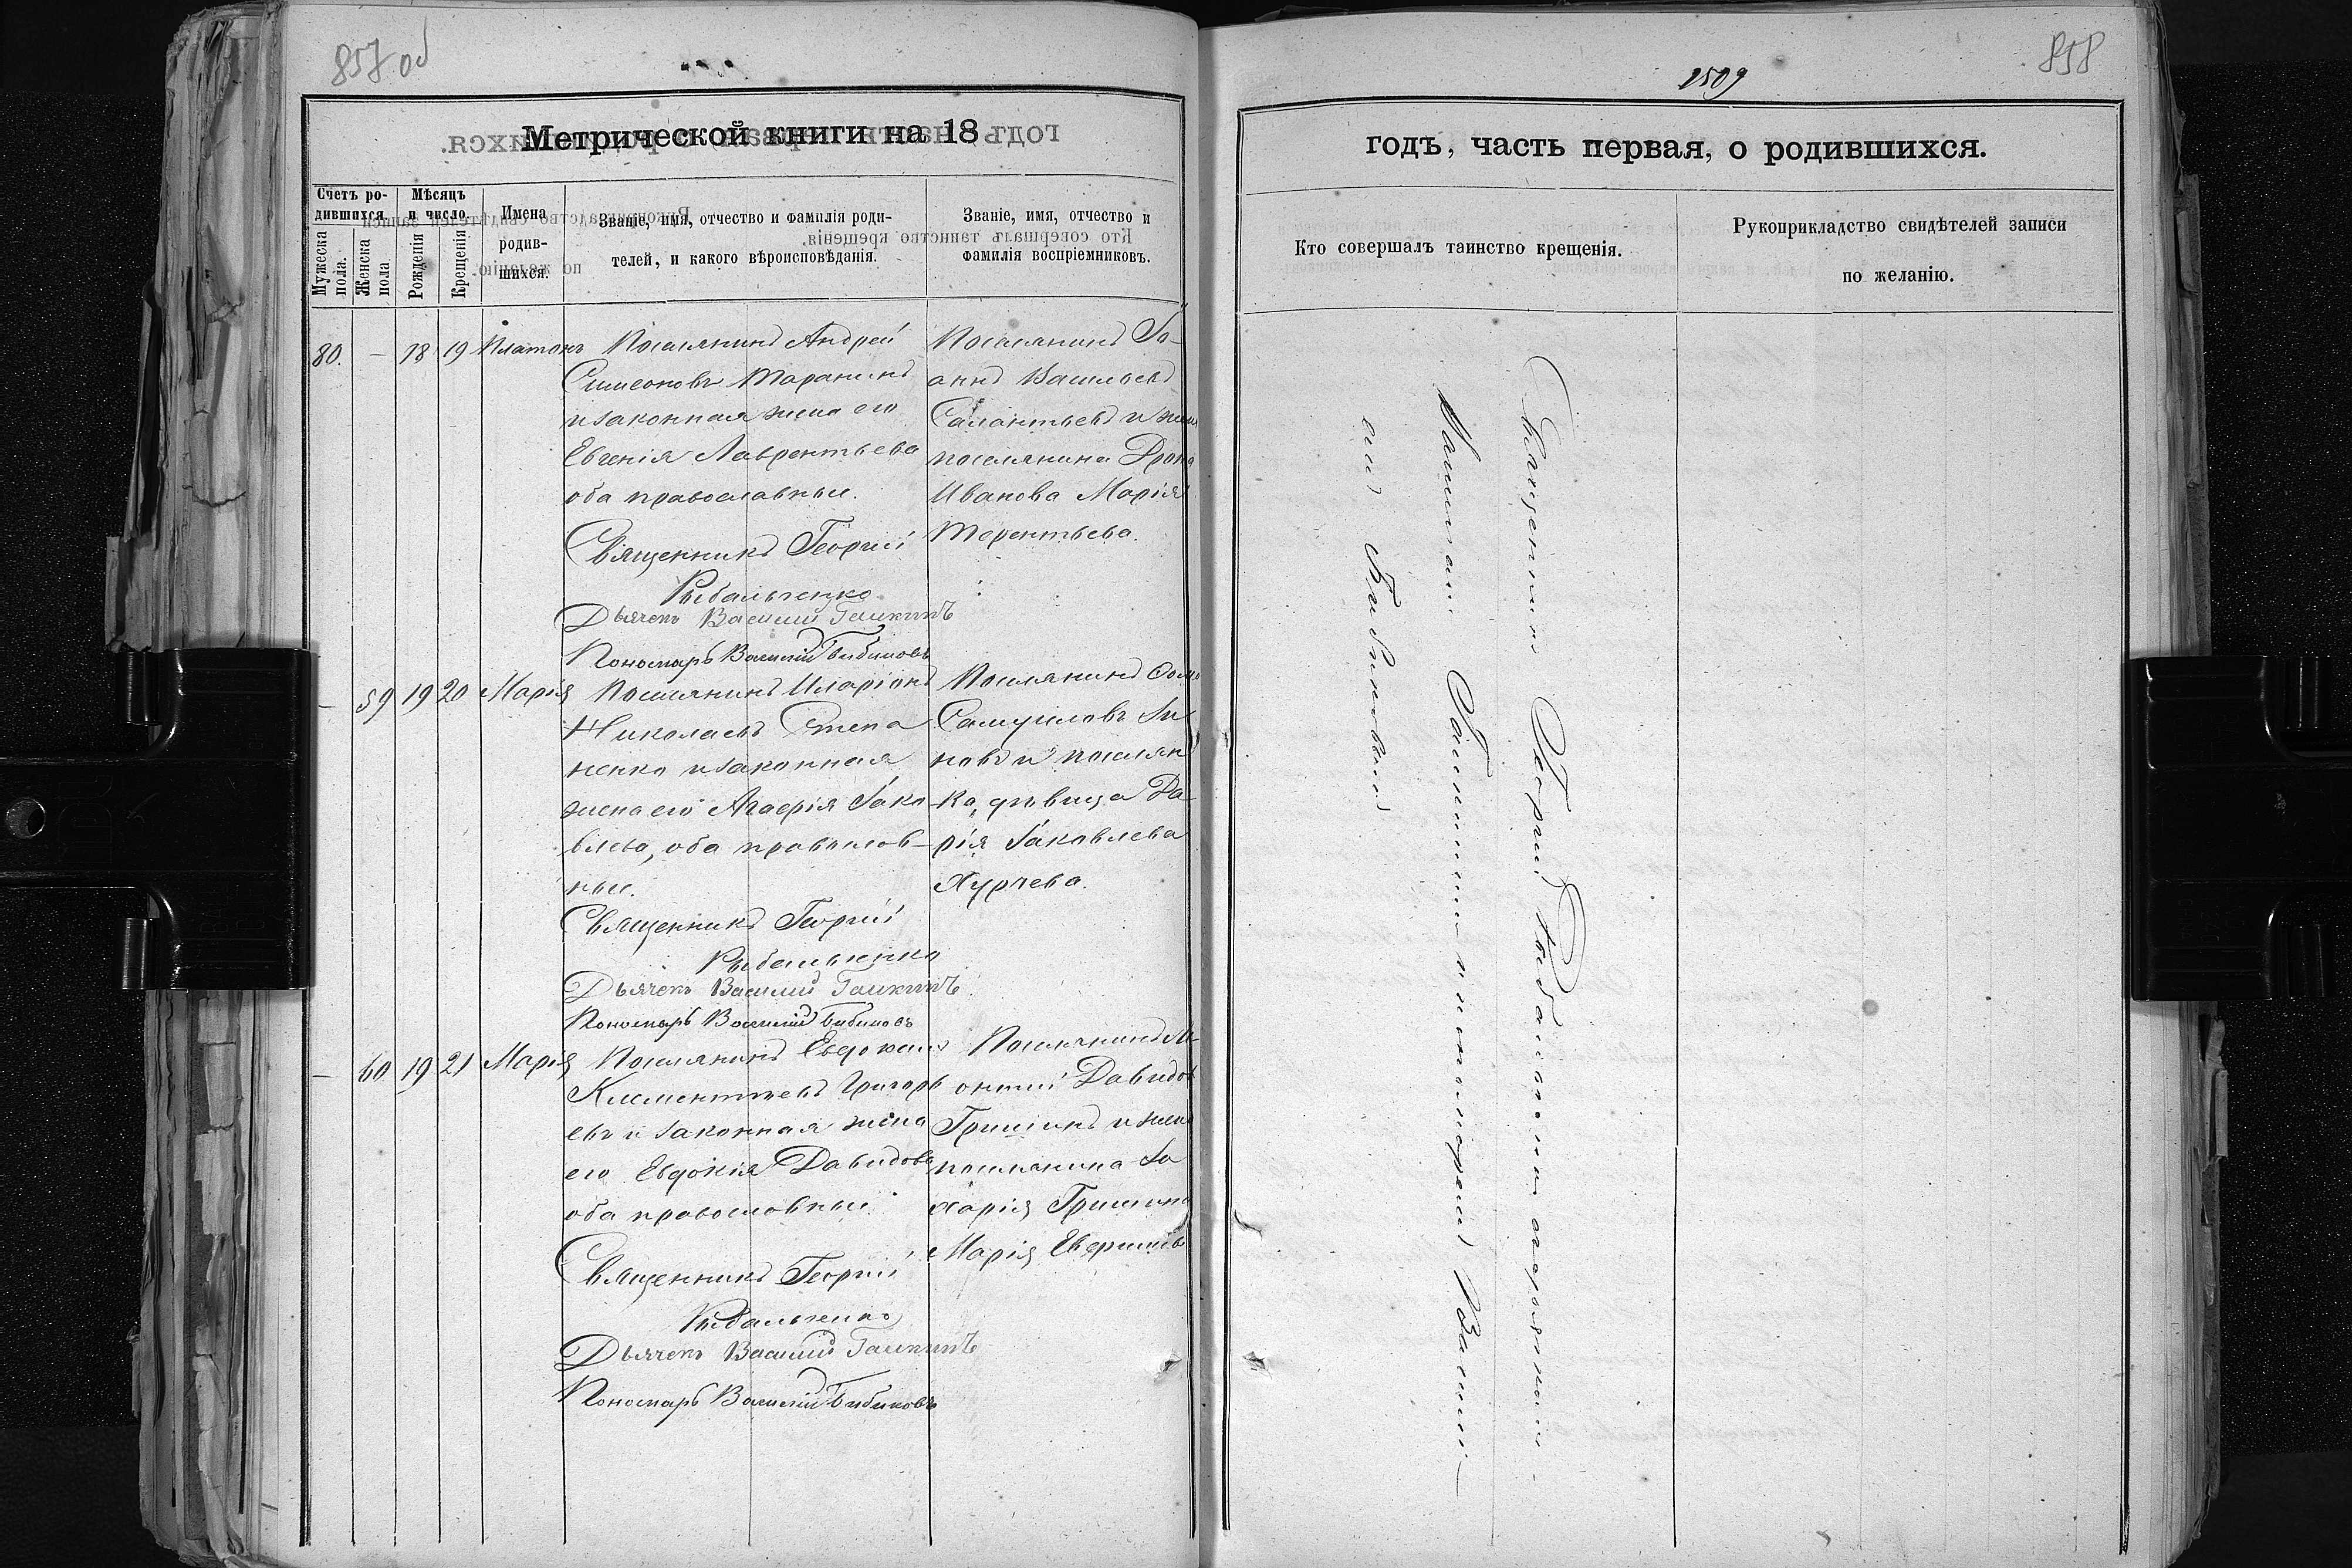 857 об
Метрической книги на 18
Счетъ ро-
дившихся.
Мужеска пола.
Женска пола
Мѣсяцъ
и число.
Рожденія
Крещенія
Имена
родив-
шихся.
Званіе, имя, отчество и фамилія роди-
телей, и какого вѣроисповѣданія.
Званіе, имя, отчество и
фамилія воспріемниковъ.
80. — 18 19 Платонъ
Поселянинъ Андрей
Симеоновъ Таранинъ
и законная жена его
Евгенія Лаврентьева
оба православные.
Священникъ Георгій
Рыбальченко
Дьячекъ Василий Галкинъ
Пономарь Василій Бабиковъ
Поселянинъ Іо-
аннъ Васильевъ
и жена
поселянина
Иванова Марія
Терентьева.
— 59 19 20 Марія
Поселянинъ Иларіонъ
Николаевъ Степа
ненко и законная
жена его Агафія Іако
влева, оба православ-
ные.
Священникъ Георгій
Рыбальченко
Дьячекъ Василий Галкинъ
Пономарь Василій Бабиковъ
Поселянинъ
Самуиловъ
новъ и поселян
ка, дѣвица Да-
рія Іаковлева
Курчева.
— 60 19 21 Марія
Поселянинъ Евдокимъ
Климентьевъ Григорь
евъ и законная жена
его Евдокія Давидова
оба православные.
Священникъ Георгій
Рыбальченко
Дьячекъ Василий Галкинъ
Пономарь Василій Бабиковъ
Поселянинъ
Давидов
Гришинъ и жена
поселянина За
харія Гришина
Марія
2509
858
годъ, часть первая, о родившихся.
Кто совершалъ таинство крещенія.
Рукоприкладство свидѣтелей записи
по желанію.
Священникъ Георгій Рыбальченко
Галкинымъ и пономаремъ Васил-
емъ Бабиковымъ